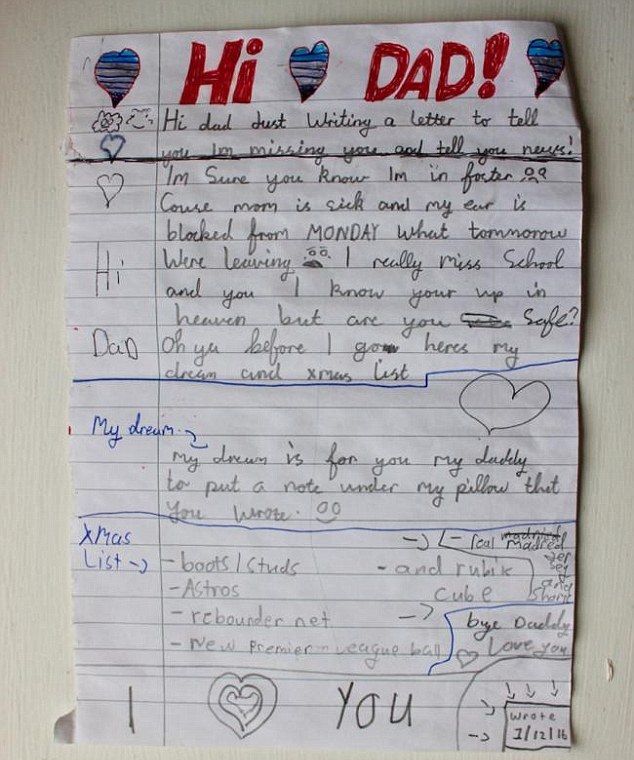 Hi DAD!
Hi dad Just Writing a letter to tell
you Im missing you and tell you news!
Im Sure you know Im in foster
Couse mom is sick and my ear is
blocked from MONDAY What tomnorow
Were leaving I really miss School
and you I know your up in
heaven but are you Safe?
Hi
Dad
Oh ya before I go heres my
dream and xmas list
My dream
my dream is for you my daddy
to put a note under my pillow that
you wrote.
Xmas
List
- boots/studs
- Astros
- rebounder net
- New Premier League ball
- real madred
jersey
and
shorts
- and rubik
cube
bye Daddy
Love you
I YOU
Wrote
1/12/16